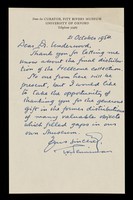 From the CURATOR, PITT RIVERS MUSEUM
UNIVERSITY OF OXFORD
21 October 1950
Dear Mr. Underwood,
Thank you for letting me
know about the final distribution
of the collection.
No one from here will be
present, but I would like
to take the opportunity of
thanking you for the generous
gift in the former distribution
of many valuable objects
which filled gaps in our
own Museum.
Yours sincerely,